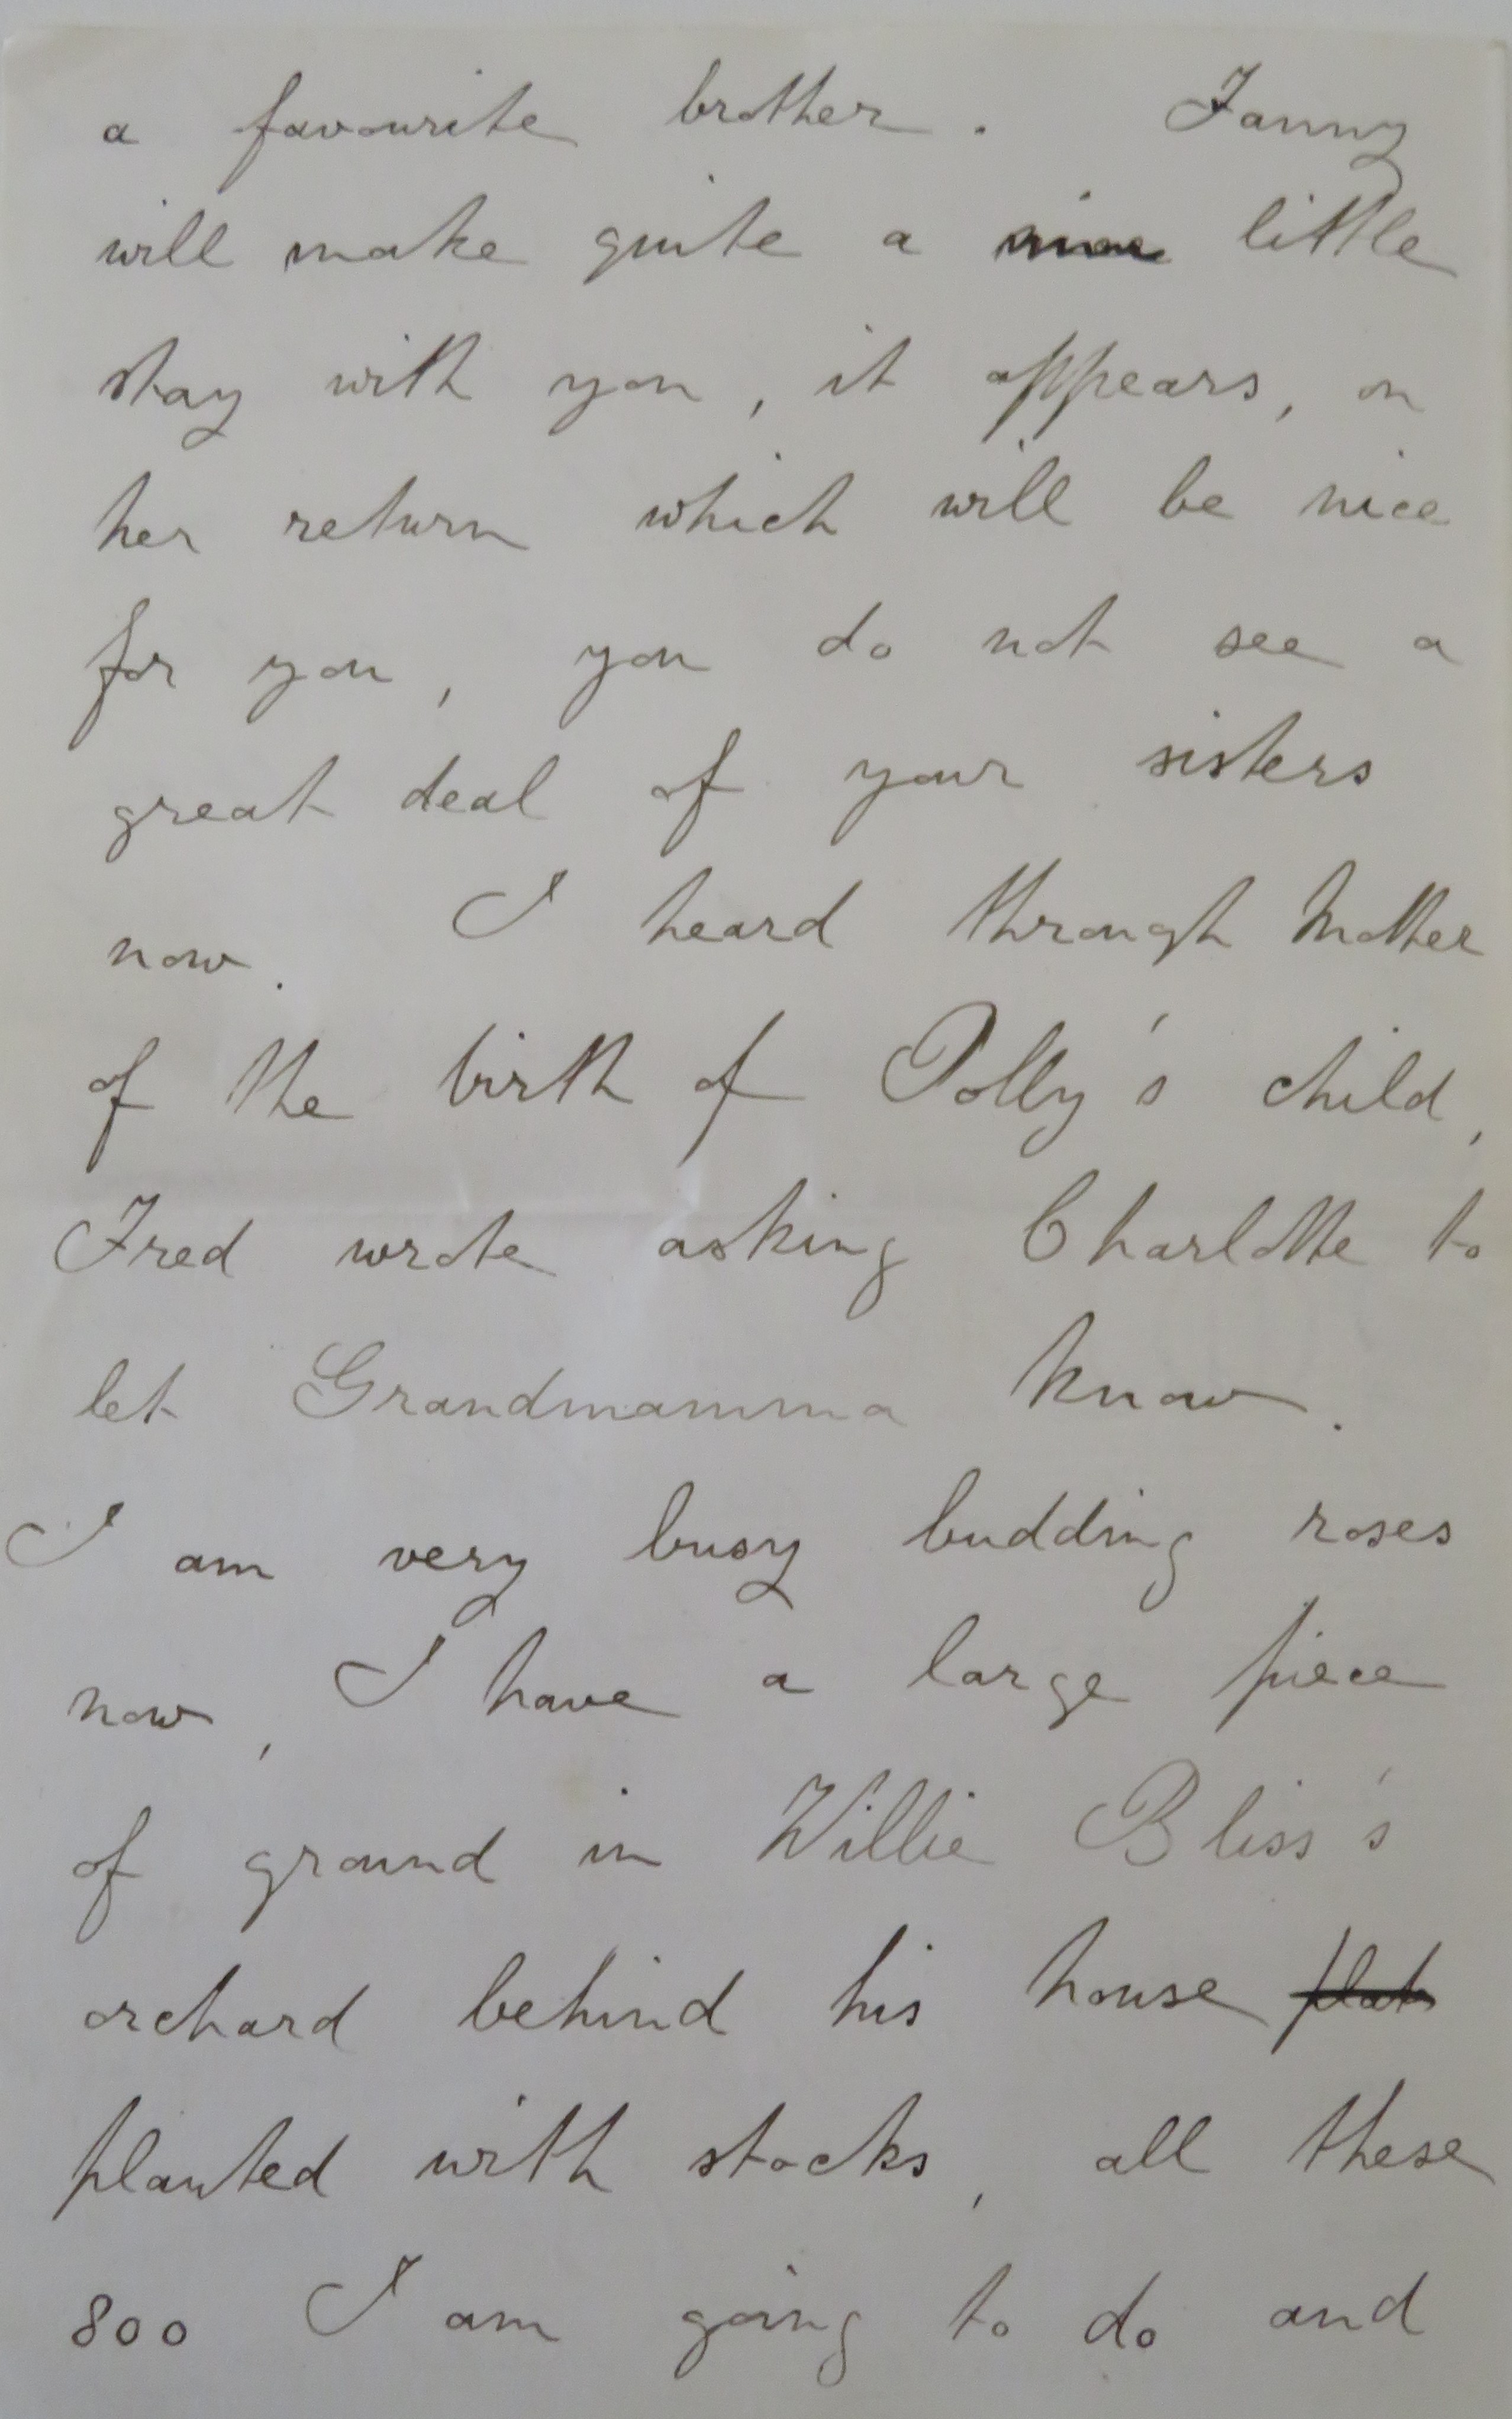 a favourite brother. Fanny
will make quite a nice little
stay with you, it appears, on
her return which will be nice
for you, you do not see a
great deal of your sisters
now. I heard through Mother
of the birth of Polly's child,
Fred wrote asking Charlotte to
let Grandmamma know.
I am very busy budding roses
now, I have a large piece
of ground in Willie Bliss's
orchard behind his house
planted with stocks, all these
800 I am going to do and